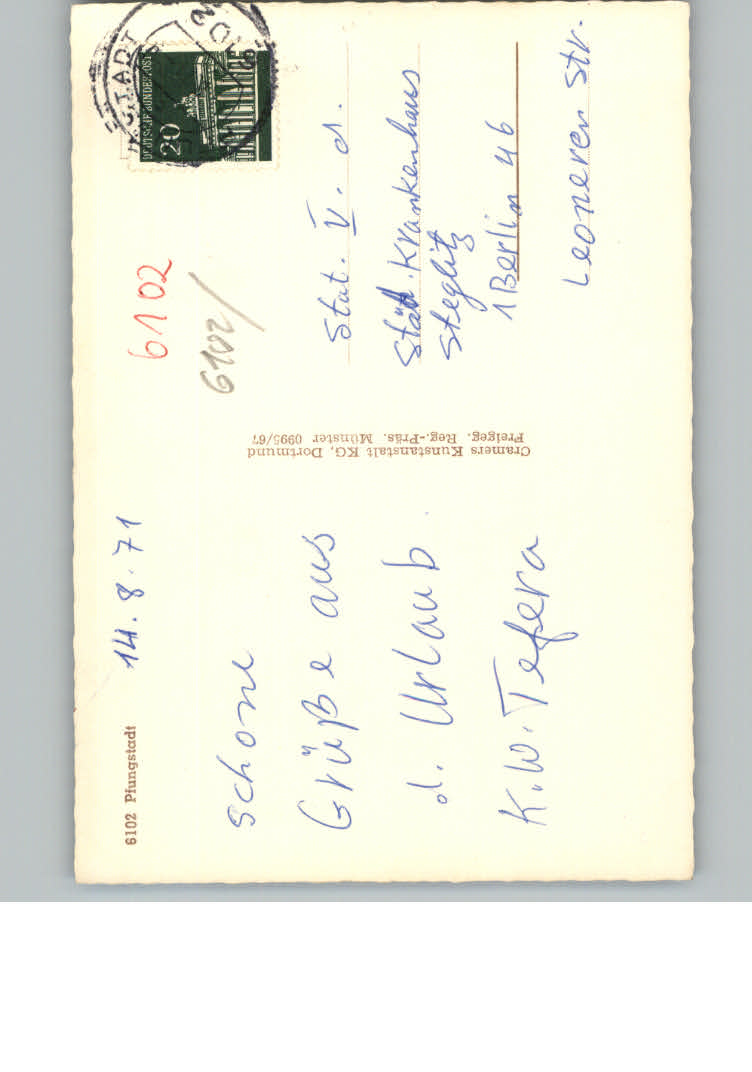 6102 Pfungstadt
14.8.71
schöne
Grüße aus
d. Urlaub.
K.W. Tefera
Cramers Kunstanstalt KG, Dortmund
Freigeg. Reg.-Präs. Münster 0995/67
DEUTSCHE BUNDESPOST
20
6102
6102/
Stat. V. d.
Städt. Krankenhaus
Steglitz
1 Berlin 46
Leoneren Str.